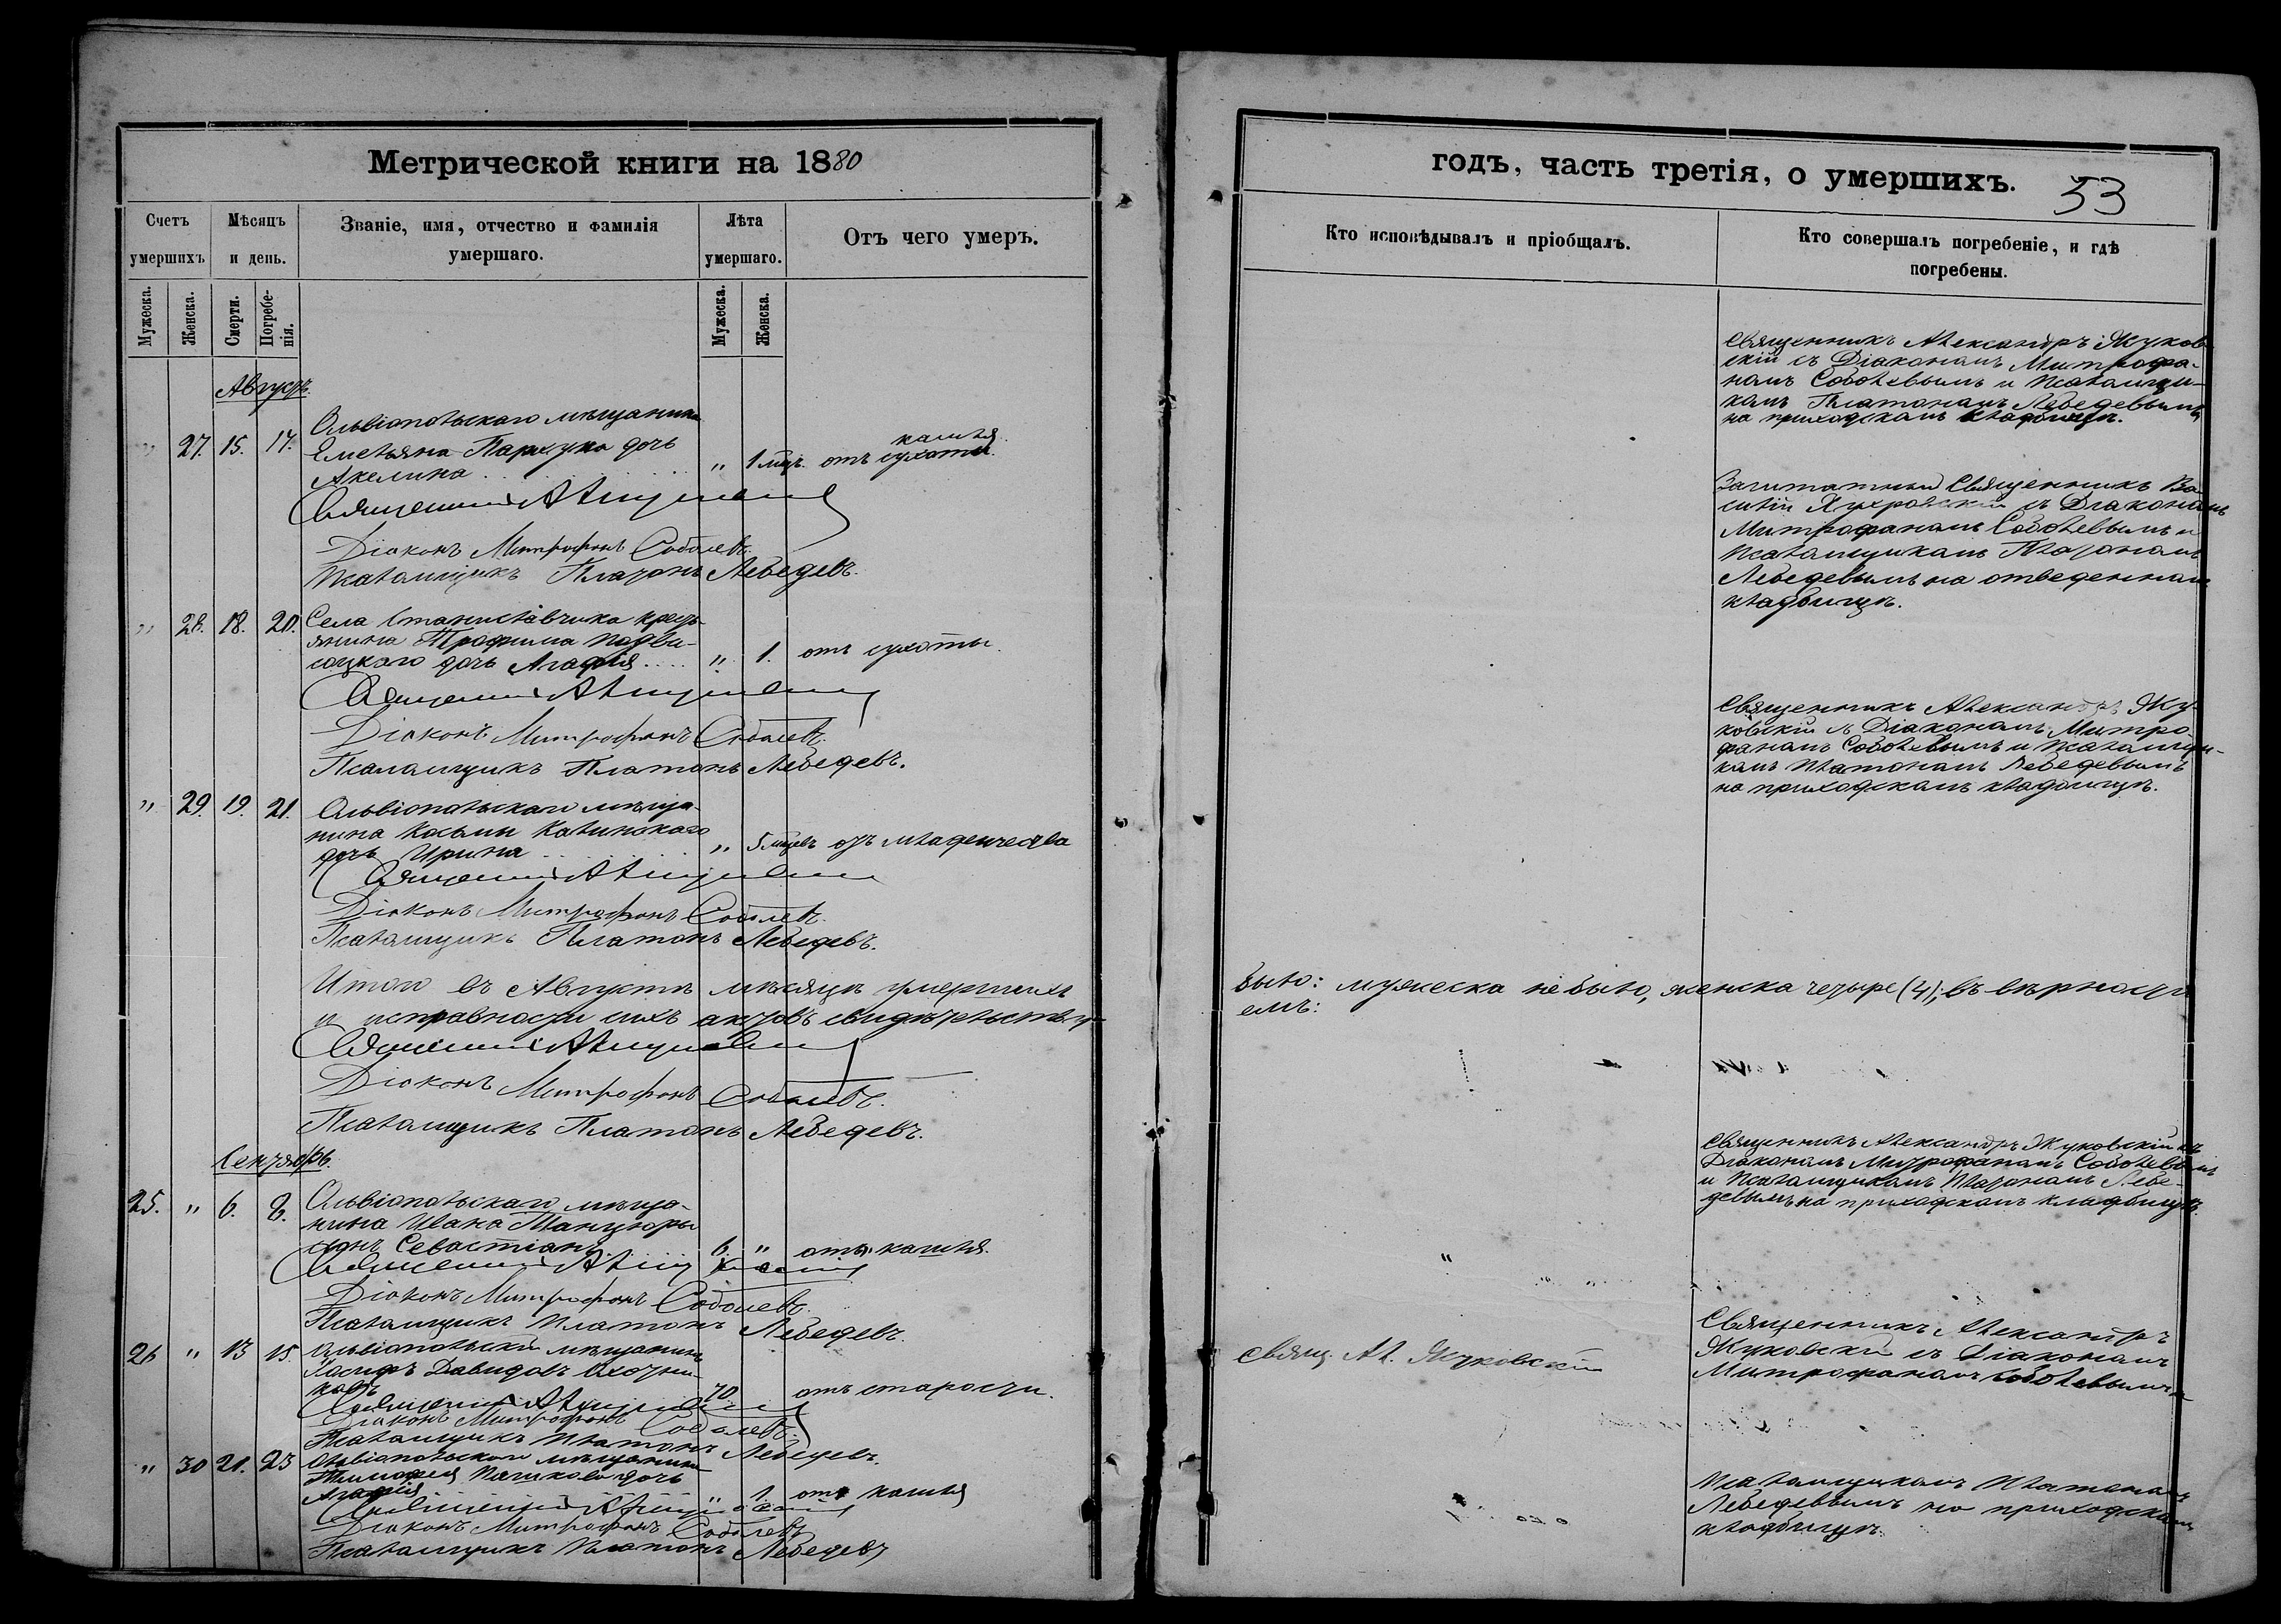 Метрической книги на 1880
Счетъ умершихъ
Мѣсяцъ и день.
Званіе, имя, отчество и фамилія
умершаго.
Лѣта
умершаго.
Отъ чего умеръ.
Мужеска.
Женска.
Смерти.
Погребе-
нія.
Мужеска.
Женска.
Августъ.
Ольвіопольскаго мѣщанина
" 27. 15. 17. Емельяна дочь
Акелина " 1 мѣц. отъ сухоты кашля
Священникъ
Діаконъ Митрофанъ Соболевъ.
Псаломщикъ Платонъ Лебедевъ.
" 28. 18. 20. Села Станиславчика кресть-
янина Трофима Подви-
соцкаго дочь Агафія " 1. отъ сухоты.
Священникъ
Діаконъ Митрофанъ Соболевъ.
Псаломщикъ Платонъ Лебедевъ.
" 29. 19. 21. Ольвіопольскаго мѣща-
нина Косьмы Калинскаго
дочь Ирина " 5 мѣцевъ отъ младенчества
Священникъ
Діаконъ Митрофанъ Соболевъ.
Псаломщикъ Платонъ Лебедевъ.
Итого въ Августѣ мѣсяцѣ умершихъ
и исправности сихъ актовъ свидѣтельству-
Священникъ
Діаконъ Митрофанъ Соболевъ.
Псаломщикъ Платонъ Лебедевъ.
Сентябрь.
25. " 6. 8. Ольвіопольскаго мѣща-
нина Ивана Танцюры
сынъ Севастіанъ 6. " отъ кашля.
Священникъ
Діаконъ Митрофанъ Соболевъ.
Псаломщикъ Платонъ Лебедевъ.
26 " 13 15 Ольвіопольскій мѣщанинъ
Іосифъ Давидовъ Охотни-
ковъ 70 отъ старости.
Священникъ
Діаконъ Митрофанъ Соболевъ.
Псаломщикъ Платонъ Лебедевъ.
" 30 21. 23 Ольвіопольскаго мѣщанина
Тимофея дочь
Агафія " 1. отъ кашля
Священникъ
Діаконъ Митрофанъ Соболевъ
Псаломщикъ Платонъ Лебедевъ
годъ, часть третія, о умершихъ. 53
Кто исповѣдывалъ и пріобщалъ.
Кто совершалъ погребеніе, и гдѣ
погребены.
Священникъ Александръ Жуков-
скій съ Діакономъ Митрофа-
номъ Соболевымъ и Псаломщи-
комъ Платономъ Лебедевымъ
на приходскомъ кладбищѣ.
Заштатный Священникъ Ва-
силій съ Діакономъ
Митрофаномъ Соболевымъ и
Псаломщикомъ Платономъ
Лебедевымъ на отведенномъ
кладбищѣ.
Священникъ Александръ Жу-
ковскій съ Діакономъ Митро-
фаномъ Соболевымъ и Псаломщи-
комъ Платономъ Лебедевымъ
на приходскомъ кладбищѣ.
было: мужеска не было, женска четыре (4); въ вѣрности
емъ:
Священникъ Александръ Жуковскій съ
Діакономъ Митрофаномъ Соболевымъ
и Псаломщикомъ Платономъ Лебе-
девымъ на приходскомъ кладбищѣ.
Свящ. Ал. Жуковскій
Священникъ Александръ
Жуковскій съ Діакономъ
Митрофаномъ Соболевымъ и
Псаломщикомъ Платономъ
Лебедевымъ на приходскомъ
кладбищѣ.